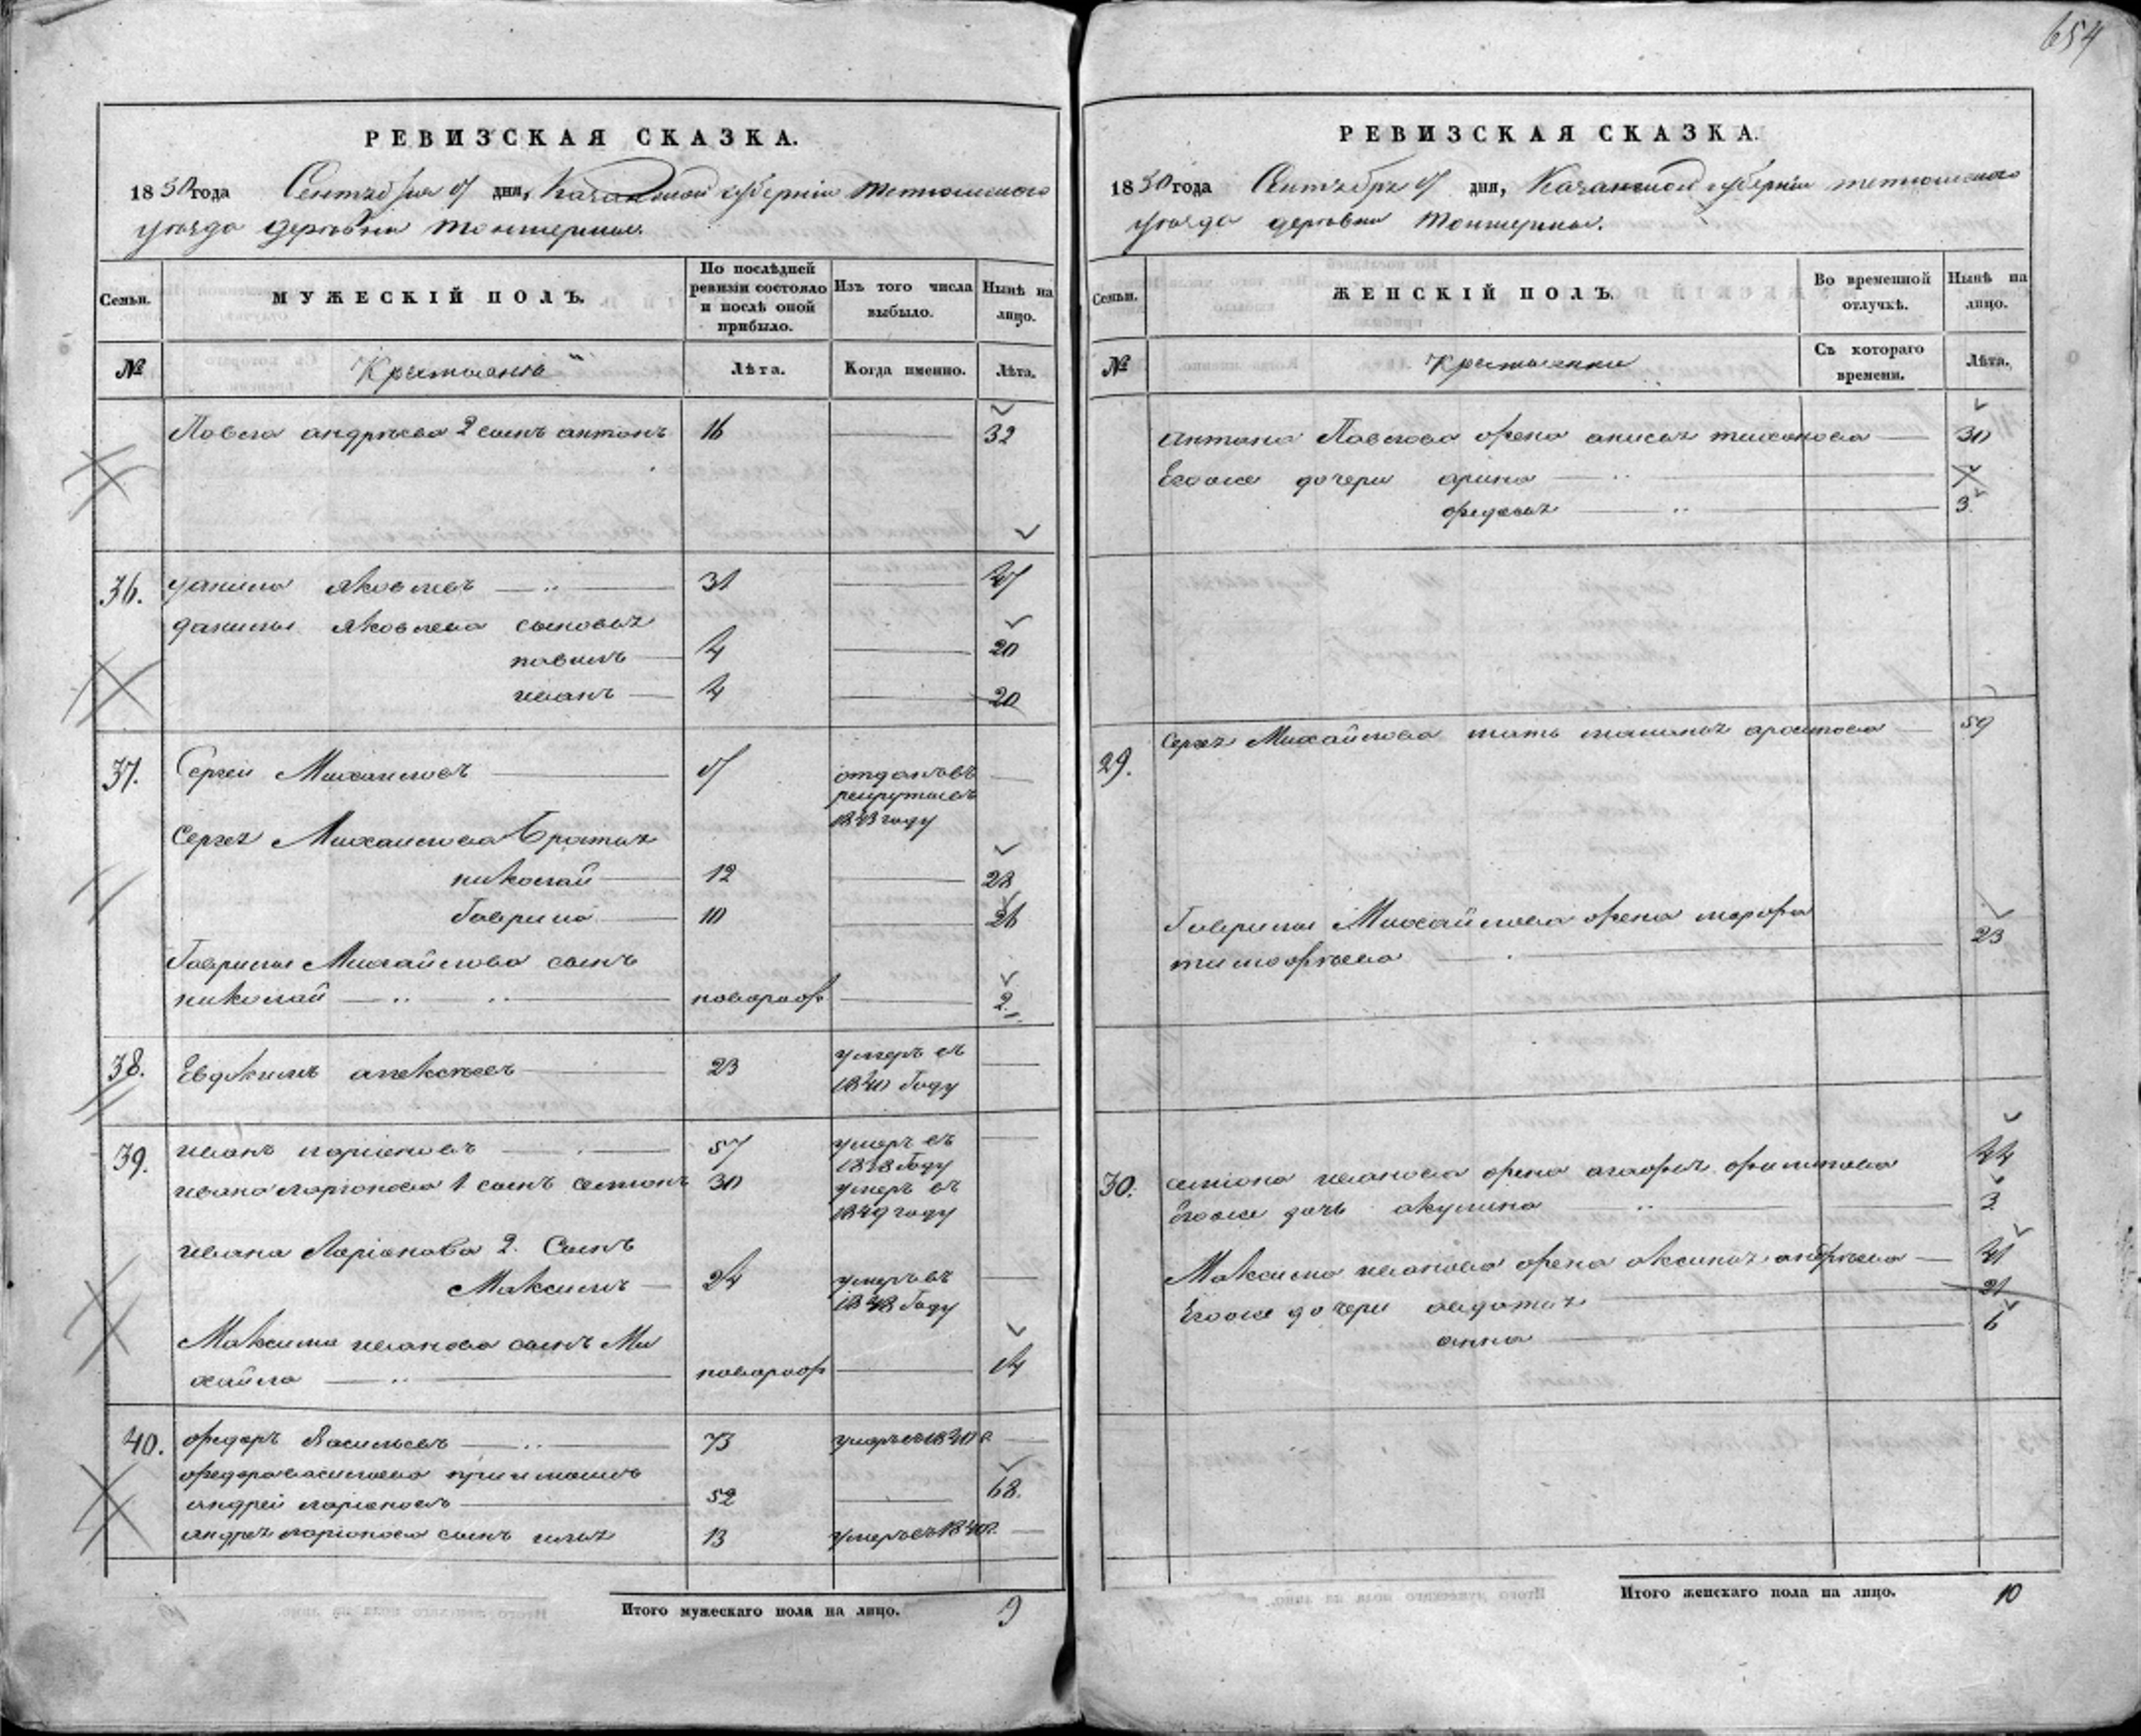 654
РЕВИЗСКАЯ СКАЗКА.
1850 года Сентября 17 дня, Казанской губерніи тетюшского
уѣзда деревни
Семьи.
МУЖЕСКІЙ ПОЛЪ.
По послѣдней ревизіи состояло и послѣ оной прибыло.
Изъ того числа выбыло.
Нынѣ на лицо.
№
Крестьянѣ
Лѣта.
Когда именно.
Лѣта.
Павла андрѣева 2 сынъ антонъ 16 32
36. данила яковлевъ 31 47
данилы яковлева сыновья
павилъ 4 20
иванъ 4 20
37. Сергей Михаиловъ 17 отданъ въ
рекруты въ
1843 году
Сергея Михаилова братья
николай 12 28
Гаврила 10 26
Гаврилы Михайлова сынъ
николай новорож 2
38. Евдокимъ алексеевъ 23 умеръ въ
1840 Году
39. иванъ ларіоновъ 57 умеръ въ
1838 Году
ивана ларіонова 1 сынъ семіонъ 30 умеръ въ
1849 году
ивана Ларіонова 2. Сынъ
Максимъ 24 умеръ въ
1848 Году
Максима иванова сынъ Ми
хайла новорож 14
40. федоръ Васильевъ 73 умеръ въ 1840 г.
федора василева приимышъ
андрей ларіоновъ 52 68.
андрея ларіонова сынъ илья 13 умеръ въ 1840 г.
Итого мужескаго пола на лицо. 9
РЕВИЗСКАЯ СКАЗКА.
1850 года Сентября 17 дня, Казанской губерніи тетюшского
уѣзда деревни
Семьи.
ЖЕНСКІЙ ПОЛЪ.
Во временной отлучкѣ.
Нынѣ на лицо.
№
Крестьянки
Съ котораго времени.
Лѣта.
антона Павлова жена анисья тихонова 30
Егоже дочери арина 7
федосья 3
29. Сергея Михайлова мать 59
Гаврилы Михайлова жена марфа
тимофѣева 23
30. семіона иванова жена агафья филипова 44
Егоже дочь акулина 3
Максима иванова жена аксинья андрѣева 41
Егоже дочери авдотья 21
анна 6
Итого женскаго пола на лицо. 10